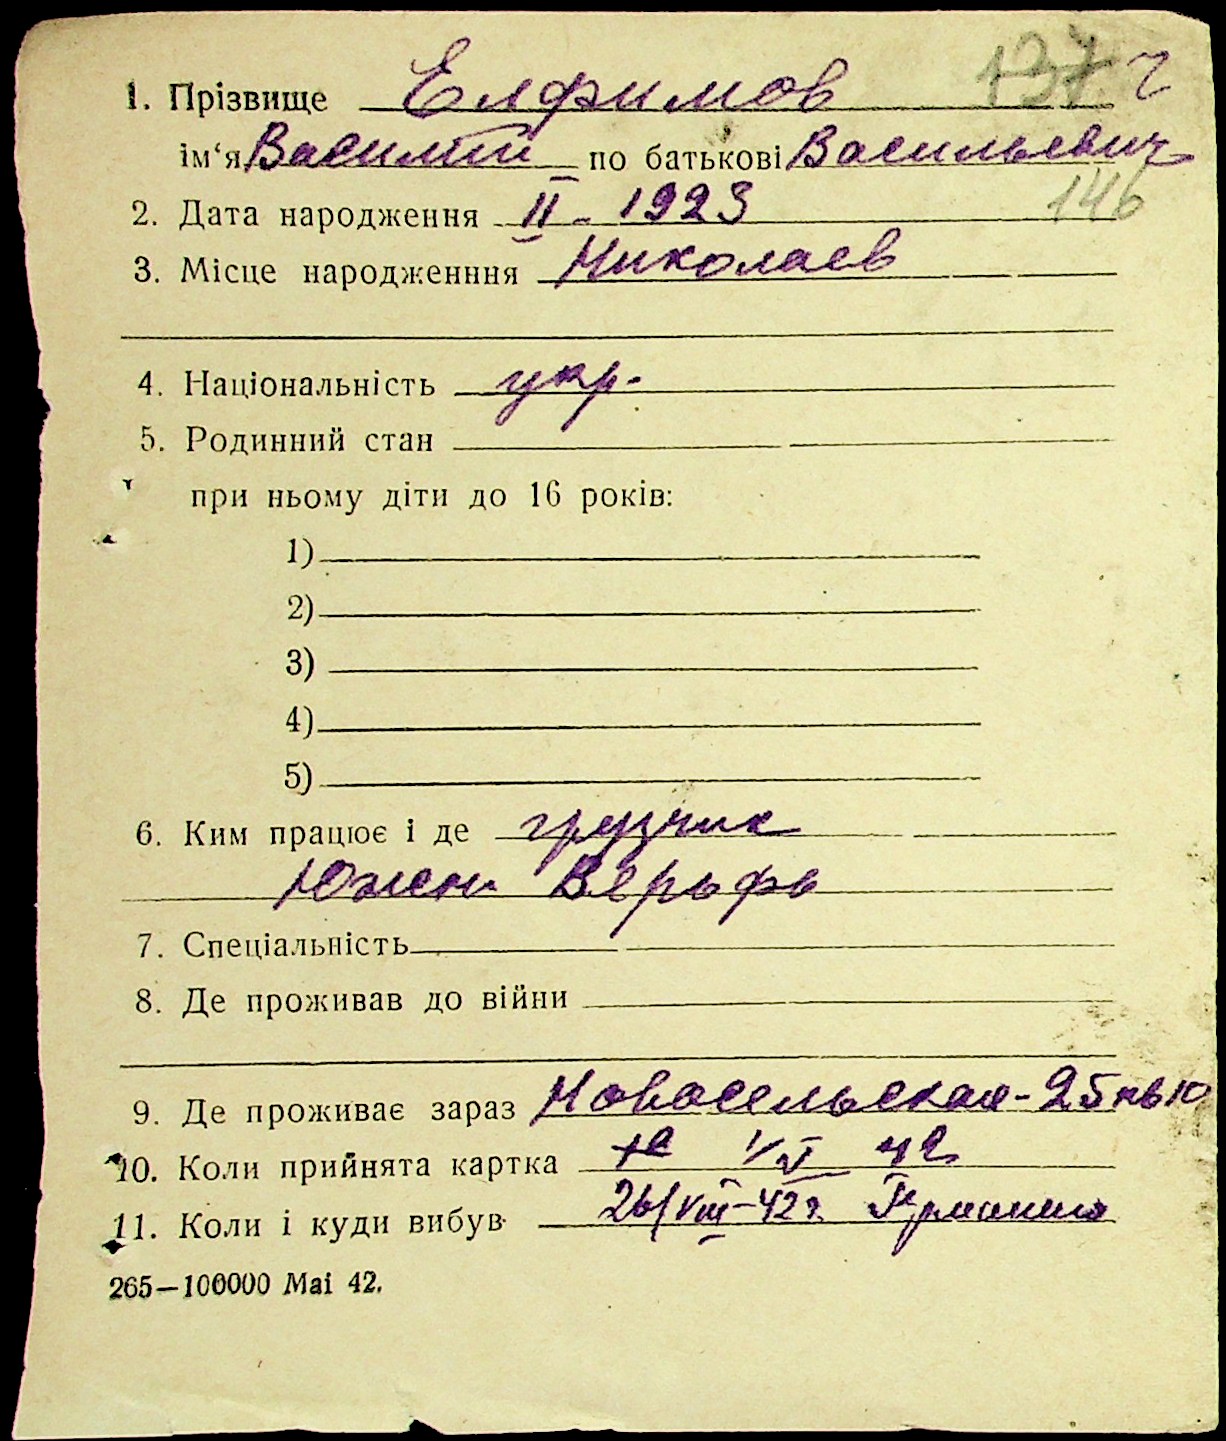 137 ч
1. Прізвище Елфимов
ім‘я Василий по батькові Васильевич
146
2. Дата народження II - 1923
3. Місце народженння Николаев
4. Національність укр.
5. Родинний стан
при ньому діти до 16 років:
1)
2)
3)
4)
5)
6. Ким працює і де грузчик
Южн Верфь
7. Спеціальність
8. Де проживав до війни
9. Де проживає зараз Новосельская - 25 кв 10
10. Коли прийнята картка 42
11. Коли і куди вибув 26/VIII-42 г. Германия
265—100000 Mai 42.